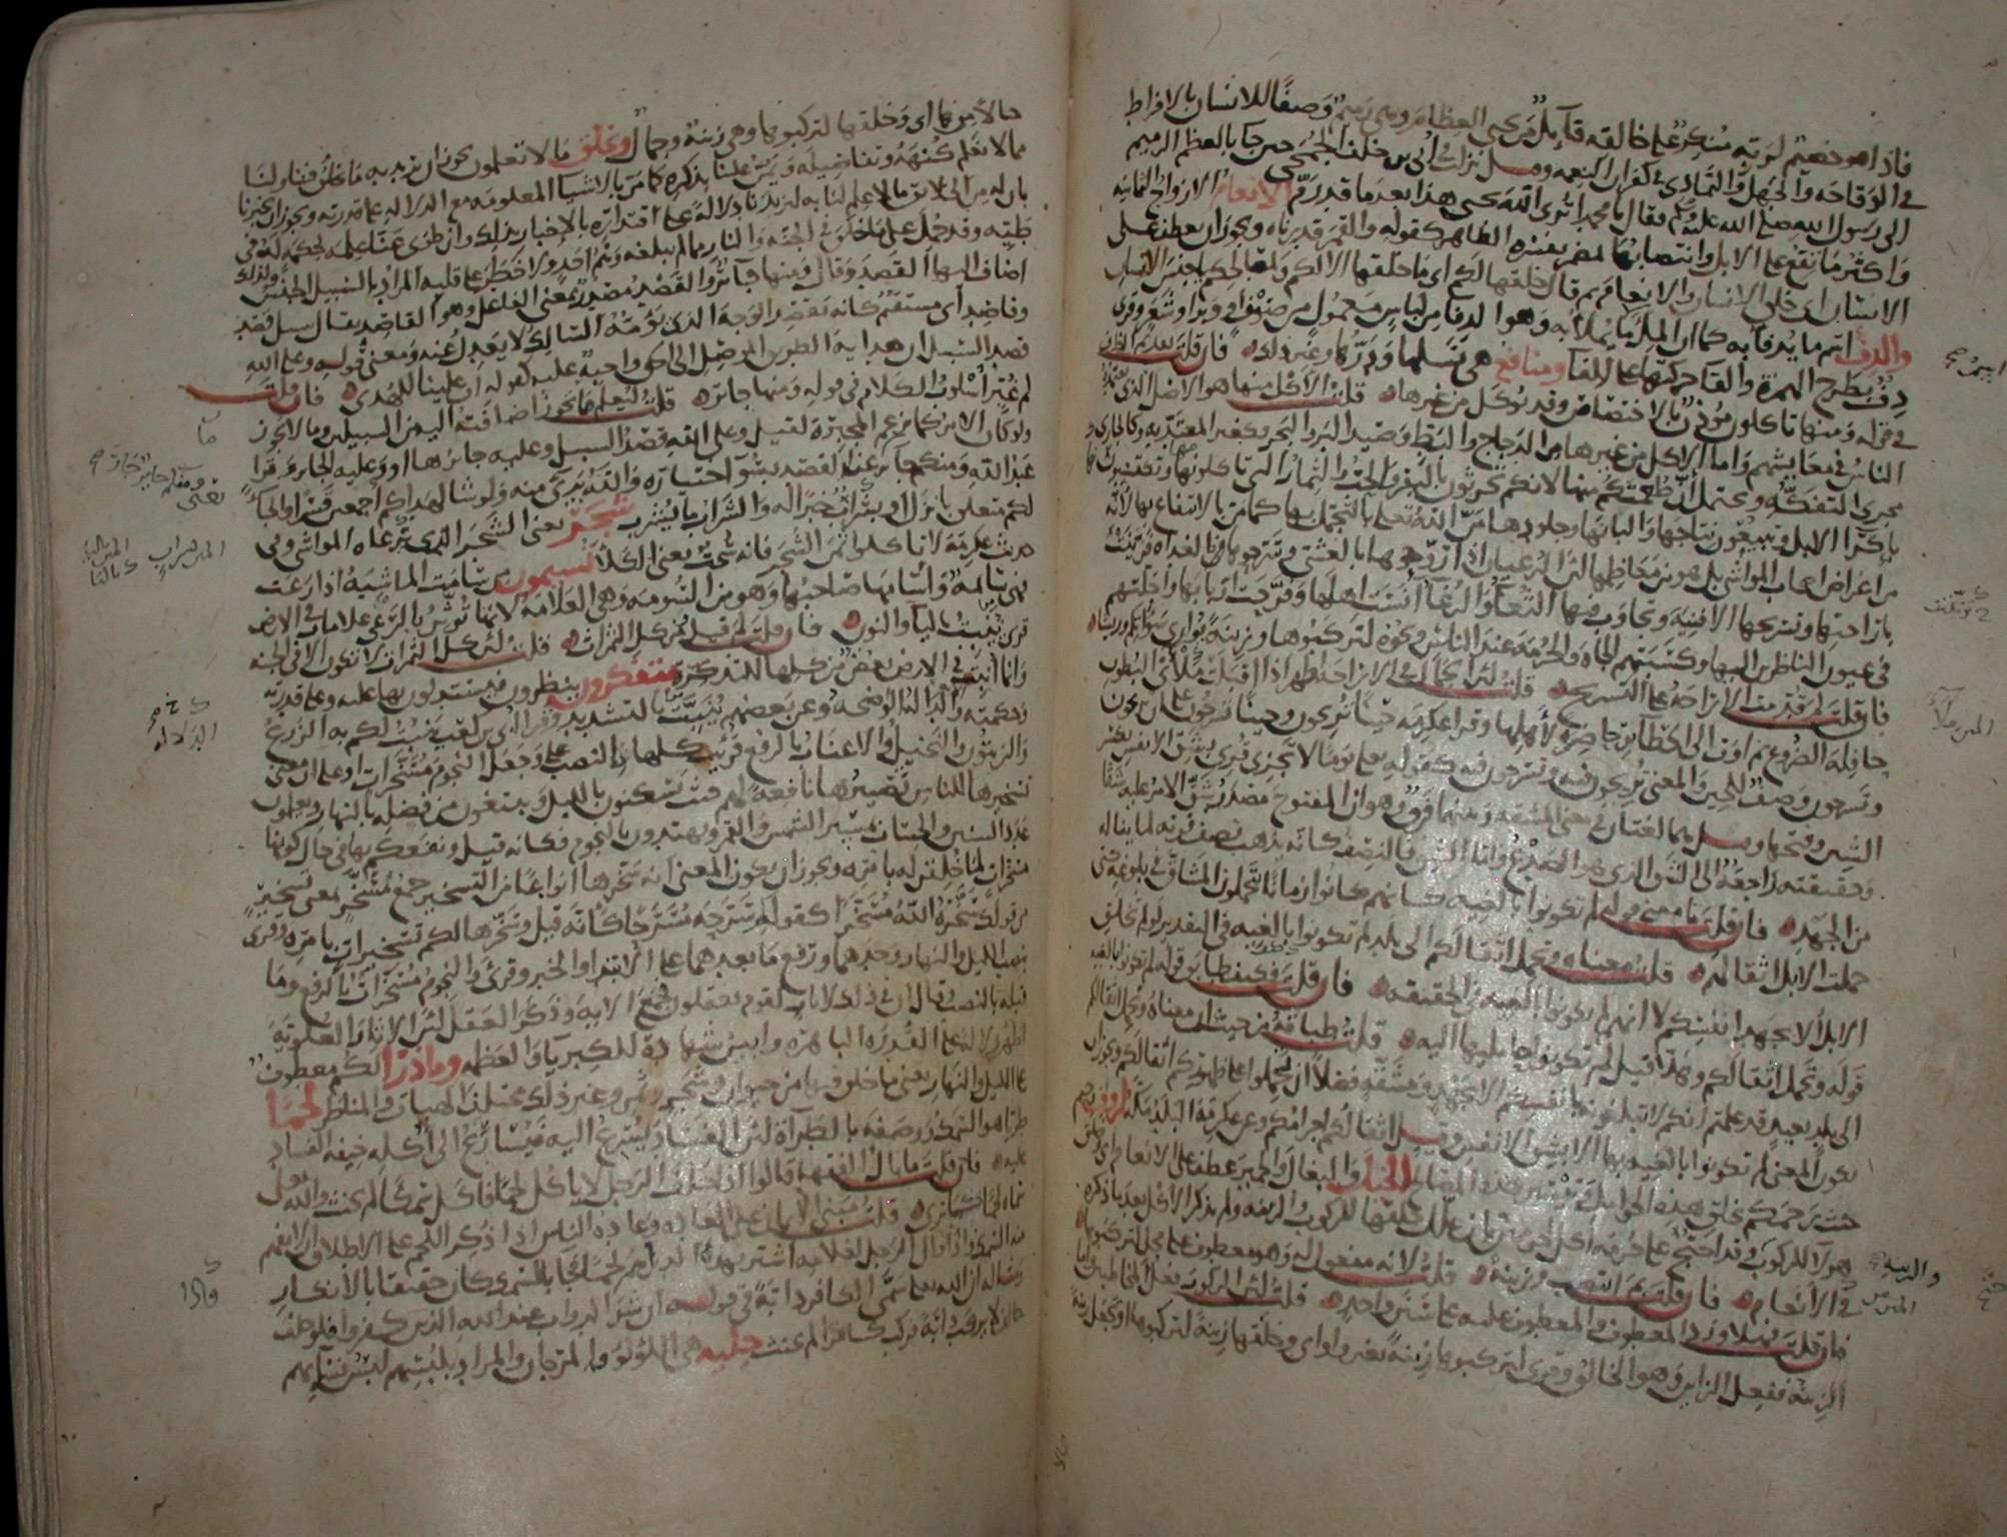 فاذا هو خصيم لربه منكر على خالقه قائل من يحيي العظام وهي رميم وصفا للانسان بالافراط
في الوقاحه والجهل والتمادي في كفران النعمه وقيل نزلت في ابي بن خلف الجمحي حين جا بالعظم الرميم
الى رسول الله صلى الله عليه وسلم فقال يا محمد اترى الله يحيي هذا بعد ما قد رم الانعام الازواج الثمانيه
واكثر ما تقع على الابل وانتصابها بمضمر يفسره الظاهر كقوله والقمر قدرناه ويجوز ان يعطف على
الانسان اي خلق الانسان والانعام ثم قال خلقها لكم اي ما خلقها الا لكم ولمصالحكم يا جنس الانسان
والدف اسم ما يدفا به كما ان المل ما يملا به وهو الدفا من لباس معمول من صوف او وبر او شعر وقرى
دف بطرح الهمزة والقا حركتها على الفا ومنافع هي نسلها ودرها وغير ذلك فان قلت تقديم الظرف
في قوله ومنها تاكلون مؤذن بالاختصاص وقد يؤكل من غيرها قلت الاكل منها هو الاصل الذي يعتمده
الناس في معايشهم واما الاكل من غيرها من الدجاج والبط وصيد البر والبحر فكغير المعتد به وكالجاري
مجرى التفكه ويحتمل ان طعمتكم منها لانكم تحرثون بالبقر فالحب والثمار التي تاكلونها منها وتكتسبون
باكرا الابل وتبيعون نتاجها والبانها وجلودها من الله تعلى بالتجمل بها كما من بالانتفاع بها لانه
من اغراض اصحاب المواشي بل هو من معاظمها لان الرعيان اذا روحوها بالعشي وسرحوها بالغداه فزينت
باراحتها وتسريحها الافنيه وتجاوب فيها الثغا والرغا انست اهلها وفرحت اربابها واجلتهم
في عيون الناظرين اليها وكسبتهم الجاه والحرمه عند الناس ونحوه لتركبوها وزينة يواري سواتكم وريشا
فان قلت لم قدمت الاراحه على التسريح قلت لان الجمال في الاراحه اظهر اذا اقبلت ملاى البطون
حافلة الضروع ثم اوت الى الحظاير حاضرة لاهلها وقرا عكرمه حينا تريحون وحينا تسرحون على ان تريحون
وتسرحون وصف للحين والمعنى تريحون فيه وتسرحون فيه كقوله تعلى يوما لا تجزي قرى بشق الانفس بكسر
الشين وفتحها وقيل هما لغتان في معنى المشقه وبينهما فرق وهو ان المفتوح مصدر شق الامر عليه شقا
وحقيقته راجعة الى الشق الذي هو الصدع واما الشق فالنصف كانه يذهب نصف قوته لما يناله
من الجهد فان قلت ما معنى قوله لم تكونوا بالغيه كانهم كانوا زمانا يتحملون المشاق في بلوغه حتى
حملت الابل اثقالهم قلت معناه وتحمل اثقالكم الى بلد لم تكونوا بالغيه في التقدير لو لم تخلق
الابل الا بجهد انفسكم لا انهم لم يكونوا بالغيه في الحقيقه فان قلت فكيف طابق قوله لم تكونوا بالغيه
قوله وتحمل اثقالكم وهلا قيل لم تكونوا حامليها اليه قلت طباقه من حيث ان معناه وتحمل اثقالكم
الى بلد بعيد قد علمتم انكم لا تبلغونه بانفسكم الا بجهد ومشقه فضلا ان تحملوا على ظهوركم اثقالكم ويجوز ان
يكون المعنى لم تكونوا بالغيه بها الا بشق الانفس وقيل اثقالكم اجرامكم وعن عكرمة البلد مكه لروف رحيم
حيث رحمكم بخلق هذه الحوامل وتيسير هذه المصالح الخيل والبغال والحمير عطف على الانعام اي وخلق
هؤلا للركوب وقد احتج على حرمة اكل لحومهن بان علل خلقها للركوب والزينه ولم يذكر الاكل بعد ما ذكره
في الانعام فان قلت لم انتصب وزينة قلت لانه مفعول له وهو معطوف على محل لتركبوها
فان قلت فهلا ورد المعطوف والمعطوف عليه على سنن واحد قلت لان الركوب فعل المخاطبين واما
الزينه ففعل الزاين وهو الخالق وقرى لتركبوها زينة بغير واو اي وخلقها زينة لتركبوها او تجعل زينة
حالا منها اي وخلقها لتركبوها وهي زينة وجمال ويخلق ما لا تعلمون يجوز ان يريد به ما يخلق فينا ولنا
مما لا نعلم كنهه وتفاصيله ويمن علينا بذكره كما من بالاشيا المعلومه مع الدلاله على قدرته ويجوز ان يخبرنا
بان له من الخلايق ما لا علم لنا به ليزيدنا دلالة على اقتداره بالاخبار بذلك وان طوى عنا علمه لحكمه له في
طيه وقد حمل على ما خلق في الجنه والنار مما لم يبلغه وهم احد ولا خطر على قلبه المراد بالسبيل الجنس ولذلك
اضاف اليها القصد وقال ومنها جائر والقصد مصدر بمعنى الفاعل وهو القاصد يقال سبيل قصد
وقاصد اي مستقيم كانه يقصد الوجه الذي يؤمه السالك لا يعدل عنه ومعنى قوله وعلى الله
قصد السبيل ان هداية الطريق الموصل الى الحق واجبة عليه كقوله ان علينا للهدى فان قلت
لم غير اسلوب الكلام في قوله ومنها جائر قلت ليعلم ما يجوز اضافته اليه من السبيلين وما لا يجوز
ولو كان الامر كما تزعم المجبرة لقيل وعلى الله قصد السبيل وعليه جائرها او وعليه الجائر وقرا
عبد الله ومنكم جائر عن القصد بسو اختياره والله بري منه ولو شا لهداكم اجمعين قسرا والجا
لكم متعلق بانزل او بشراب خبرا له والشراب ما يشرب شجر يعني الشجر الذي ترعاه المواشي وفي
حديث عكرمة لا تاكلوا ثمن الشجر فانه سحت يعني الكلا تسيمون من سامت الماشية اذا رعت
فهي سائمة واسامها صاحبها وهو من السومه وهي العلامه لانها تؤثر بالرعي علامات في الارض
قرى ينبت باليا والنون فان قلت لم قيل ومن كل الثمرات قلت لان كل الثمرات لا تكون الا في الجنه
وانما انبت في الارض بعض من كلها للتذكره يتفكرون ينظرون فيستدلون بها عليه وعلى قدرته
وحكمته والاية الدلالة الواضحه وعن بعضهم ينبت بالتشديد وقرا ابي بن كعب ينبت لكم به الزرع
والزيتون والنخيل والاعناب بالرفع قريت كلها بالنصب على وجعل النجوم مسخرات او على ان معنى
تسخيرها للناس تصييرها نافعة لهم حيث يسكنون بالليل ويبتغون من فضله بالنهار ويعلمون
عدد السنين والحساب بمسير الشمس والقمر ويهتدون بالنجوم فكانه قيل ونفعكم بها في حال كونها
مسخرات لما خلقن له بامره ويجوز ان يكون المعنى انه سخرها انواعا من التسخير جمع مسخر بمعنى تسخير
من قولك سخره الله مسخرا كقولك سرحه مسرحا كانه قيل وسخرها لكم تسخيرات بامره وقرى
بنصب الليل والنهار وحدهما ورفع ما بعدهما على الابتدا والخبر وقرئ والنجوم مسخرات بالرفع وما
قبله بالنصب وقال ان في ذلك لايات لقوم يعقلون فجمع الاية وذكر العقل لان الاثار العلوية
اظهر دلالة على القدرة الباهره وابين شهادة للكبريا والعظمه وما ذرا لكم معطوف
على الليل والنهار يعني ما خلق فيها من حيوان وشجر وثمر وغير ذلك مختلف الهيات والمناظر لحما
طريا هو السمك ووصفه بالطراة لان الفساد يسرع اليه فيسارع الى اكله خيفة الفساد
عليه فان قلت ما بال الفقها قالوا اذا حلف الرجل لا ياكل لحما فاكل سمكا لم يحنث والله تعلى
سماه لحما كما ترى قلت مبنى الايمان على العاده وعادة الناس اذا ذكر اللحم على الاطلاق ان لا يفهم
منه السمك واذا قال الرجل لغلامه اشتر بهذه الدراهم لحما فجا بالسمك كان حقيقا بالانكار
ومثاله ان الله تعلى سمى الكافر دابة في قوله ان شر الدواب عند الله الذين كفروا فلو حلف
حالف لا يركب دابة فركب كافرا لم يحنث حلية هي اللؤلؤ والمرجان والمراد بلبسهم لبس نسائهم